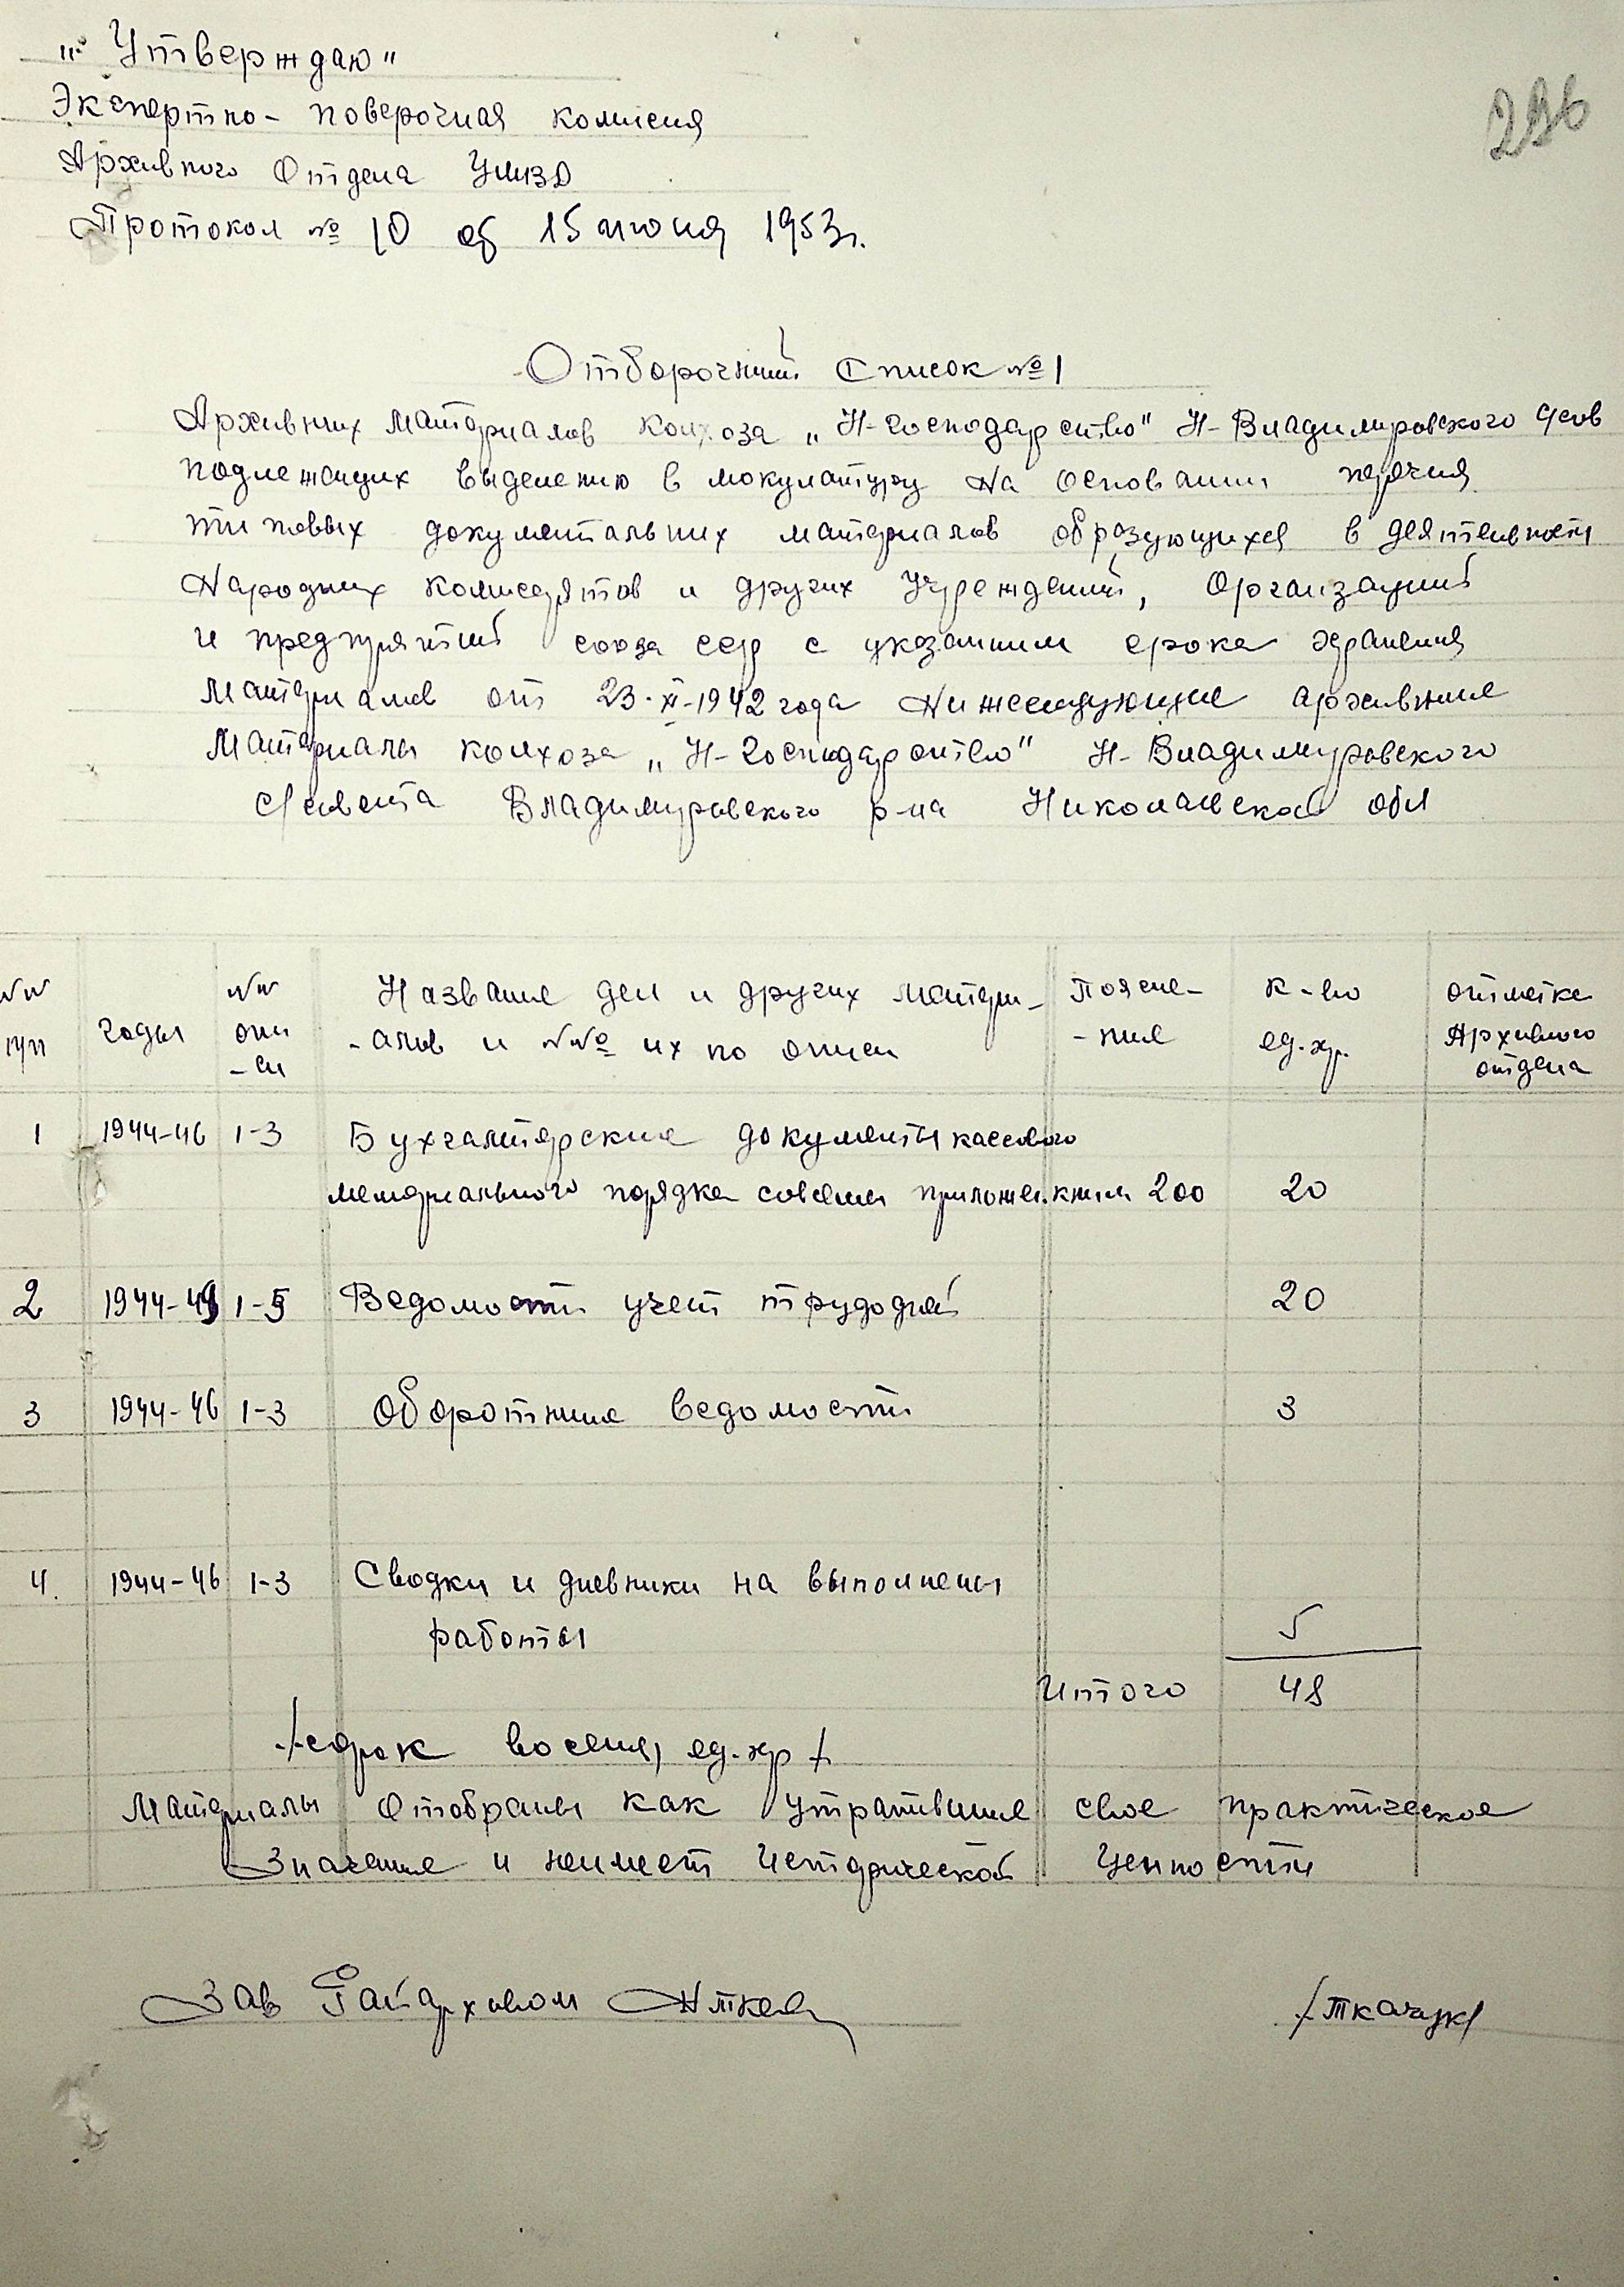 „Утверждаю"
Экспертно- поверочная комисия
Архивного Отдела УМВД
Протокол № 10 об 15 июня 1953г.
296
Отборочний Список №1
Архивних материалов колхоза „Н-Господарство" Н-Владимировского с/сов
подлежащих выделению в мокулатуру на основании перечня
типовых документальних материалов образующихся в деятельности
Народних комисарятов и других учреждений, Организаций
и предприятий союза сср с указанием срока хранения
материалов от 23·XI-1942 года Нижеследующие архивние
Материалы колхоза „Н-Господарство" Н-Владимировского
с/совета Владимировского р-на Николаевской обл
№№ п/п годы №№ опи-си Название дел и других матери-
-алов и №№ их по описи
Поясне-
-ние
к-во
ед.хр.
отметка
Архивного
отдела
1 1944-46 1-3 Бухгалтерские документы кассового
мемориального порядка совсеми приложен.книги 200 20
2 1944-49 1-5 Ведомости учет трудодней 20
3 1944-46 1-3 Оборотние ведомости 3
4. 1944-46 1-3 Сводки и дневники на выполнены
работы 5
Итого 48
/сорок восемь ед.хр/
Материалы Отобраны как утратившие свое практическое
Значение и неимеет Исторической Ценности
Зав Райархивом /Ткачук/